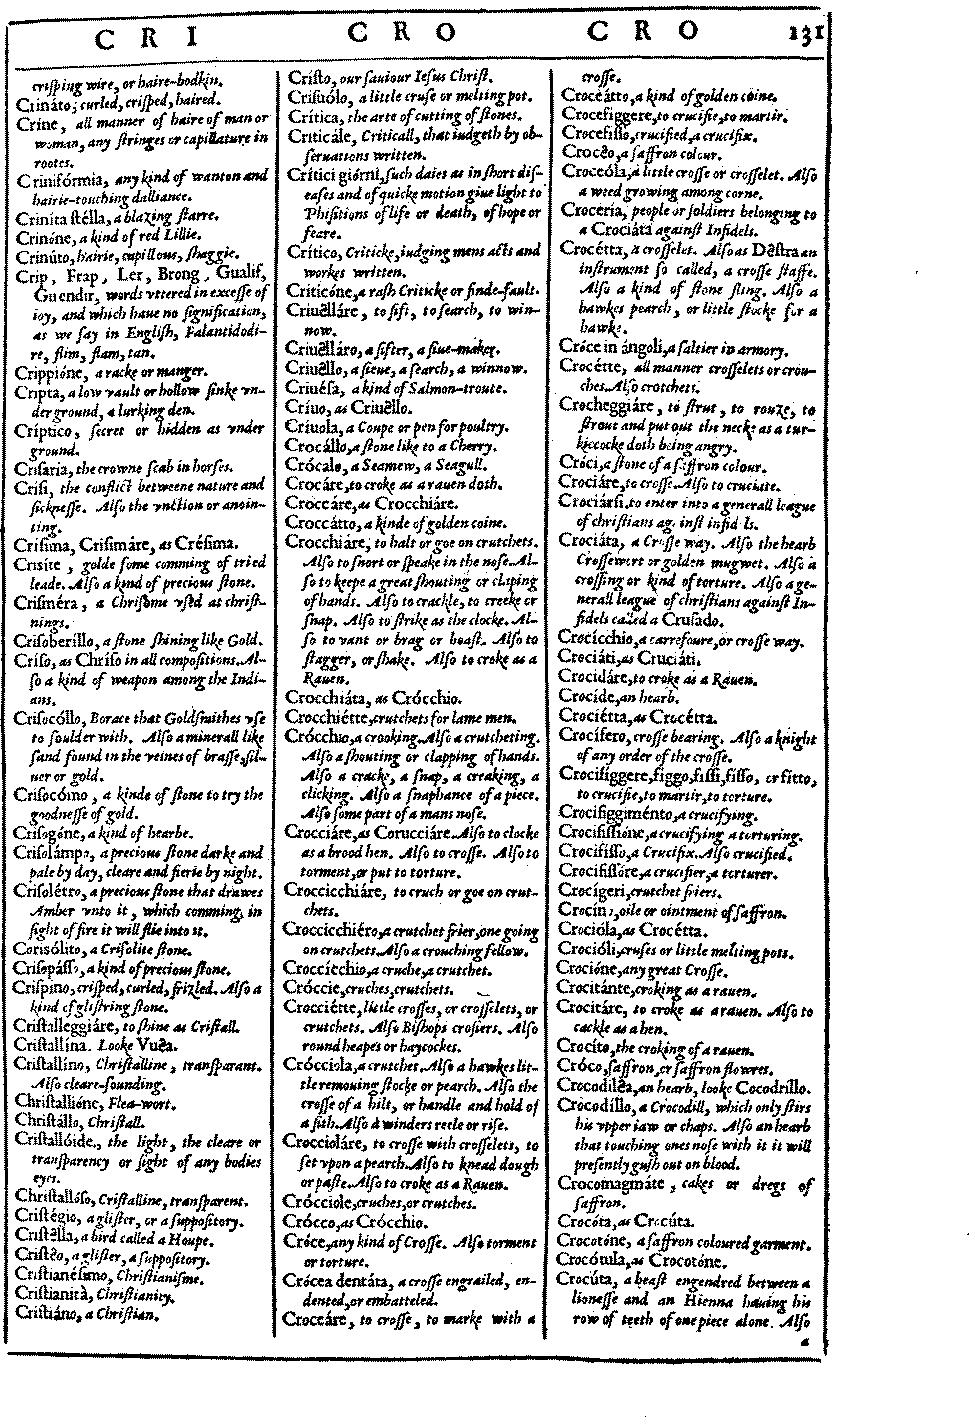 C R I
C R O
C R O
131
criſping wire, or haire-bodkin.
Crináto, curled, criſped, haired.
Crine, all manner of haire of man or
woman, any ſtringes or capillature in
rootes.
Crinifórmia, any kind of wanton and
hairie-touching dalliance.
Crinita ſtélla, a blazing ſtarre.
Crinóne, a kind of red Lillie.
Crinúto, hairie, capillous, ſhaggie.
Crip, Frap, Ler, Brong, Gualif,
Guendir, words vttered in exceſſe of
ioy, and which haue no ſignification,
as we ſay in Engliſh, Falantidodi-
re, flim, flam, tan.
Crippióne, a racke or manger.
Cripta, a low vault or hollow ſinke vn-
der ground, a lurking den.
Críptico, ſecret or hidden as vnder
ground.
Criſaria, the crowne ſcab in horſes.
Criſi, the conflict betweene nature and
ſickneſſe. Alſo the vnction or anoin-
ting.
Criſima, Criſimáre, as Créſima.
Criſite, golde ſome comming of tried
leade. Alſo a kind of precious ſtone.
Criſméra, a Chriſome vſed at chriſt-
nings.
Criſoberillo, a ſtone ſhining like Gold.
Criſo, as Chriſo in all compoſitions. Al-
ſo a kind of weapon among the Indi-
ans.
Criſocóllo, Borace that Goldſmithes vſe
to ſoulder with. Alſo a minerall like
ſand found in the veines of braſſe, ſil-
uer or gold.
Criſocómo, a kinde of ſtone to try the
goodneſſe of gold.
Criſogóne, a kind of hearbe.
Criſolámpo, a precious ſtone darke and
pale by day, cleare and fierie by night.
Criſolétro, a precious ſtone that drawes
Amber vnto it, which comming, in
ſight of fire it will flie into it.
Corisólito, a Criſolite ſtone.
Criſopáſſo, a kind of precious ſtone.
Criſpino, criſped, curled, frizled. Alſo a
kind of gliſtring ſtone.
Criſtalleggiáre, to ſhine as Criſtall.
Criſtallína. Looke Vuêa.
Criſtallíno, Chriſtalline, tranſparant.
Alſo cleare-ſounding.
Chriſtallióne, Flea-wort.
Chriſtállo, Chriſtall.
Criſtallóide, the light, the cleare or
tranſparency or ſight of any bodies
eyes.
Chriſtallóſo, Criſtalline, tranſparent.
Criſtégio, a gliſter, or a ſuppoſitory.
Criſtêlla, a bird called a Houpe.
Criſtêo, a gliſter, a ſuppoſitory.
Criſtianéſimo, Chriſtianiſme.
Criſtianità, Chriſtianity.
Criſtiáno, a Chriſtian.
Criſto, our ſauiour Ieſus Chriſt.
Criſuólo, a little cruſe or melting pot.
Crítica, the arte of cutting of ſtones.
Criticále, Criticall, that iudgeth by ob-
ſeruations written.
Crítici giórni, ſuch daies as in ſhort diſ-
eaſes and of quicke motion giue light to
Phiſitions of life or death, of hope or
feare.
Crítico, Criticke, iudging mens acts and
workes written.
Criticóne, a raſh Criticke or finde-fault.
Criuêlláre, to ſift, to ſearch, to win-
now.
Criuêlláro, a ſifter, a ſiue-maker.
Criuêllo, a ſieue, a ſearch, a winnow.
Criuéſa, a kind of Salmon-troute.
Críuo, as Criuêllo.
Críuola, a Coupe or pen for poultry.
Crocállo, a ſtone like to a Cherry.
Crócalo, a Seamew, a Seagull.
Crocáre, to croke as a rauen doth.
Croccáre, as Crocchiáre.
Croccátto, a kinde of golden coine.
Crocchiáre, to halt or goe on crutchets.
Alſo to ſnort or ſpeake in the noſe. Al-
ſo to keepe a great ſhouting or claping
of hands. Alſo to crackle, to creeke or
ſnap. Alſo to ſtrike as the clocke. Al-
ſo to vant or brag or boaſt. Alſo to
ſtagger, or ſhake. Alſo to croke as a
Rauen.
Crocchiáta, as Crócchio.
Crocchiétte, crutchets for lame men.
Crócchio, a crooking. Alſo a crutcheting.
Alſo a ſhouting or clapping of hands.
Alſo a cracke, a ſnap, a creaking, a
clicking. Alſo a ſnaphance of a piece.
Alſo ſome part of a mans noſe.
Crocciáre, as Corucciáre. Alſo to clocke
as a brood hen. Alſo to croſſe. Alſo to
torment, or put to torture.
Croccicchiáre, to cruch or goe on crut-
chets.
Croccicchiéro, a crutchet frier, one going
on crutchets. Alſo a crouching fellow.
Croccicchio, a cruche, a crutchet.
Króccie, cruches, crutchets.
Crocciétte, little croſſes, or croſſelets, or
crutchets. Alſo Biſhops croſiers. Alſo
round heapes or haycockes.
Crócciola, a crutchet. Alſo a hawkes lit-
tle remouing ſtocke or pearch. Alſo the
croſſe of a hilt, or handle and hold of
a ſith. Alſo a winders reele or riſe.
Crocciolâre, to croſſe with croſſelets, to
ſet vpon a pearch. Alſo to knead dough
or paſte. Alſo to croke as a Rauen.
Crócciole, cruches, or crutches.
Crócco, as Crócchio.
Cróce, any kind of Croſſe. Alſo torment
or torture.
Crócea dentáta, a croſſe engrailed, en-
dented, or embatteled.
Croceáre, to croſſe, to marke with a
croſſe.
Croceátto, a kind of golden coine.
Crocefiggere, to crucifie, to martir.
Crocefiſſo, crucified, a crucifix.
Crocêo, a ſaffron colour.
Croceóla, a little croſſe or croſſelet. Alſo
a weed growing among corne.
Croceria, people or ſoldiers belonging to
a Crociáta againſt Infidels.
Crocétta, a croſſelet. Alſo as Dêſtra an
inſtrument ſo called, a croſſe ſtaffe.
Alſo a kind of ſtone ſling. Alſo a
hawkes pearch, or little ſtocke for a
hawke.
Cróce in ángoli, a ſaltier in armory.
Crocétte, all manner croſſelets or crou-
ches. Alſo crotchets.
Crocheggiáre, to ſtrut, to rouze, to
ſtrout and put out the necke as a tur-
kiecocke doth being angry.
Cróci, a ſtone of a ſaffron colour.
Crociáre, to croſſe. Alſo to cruciate.
Crociárſi, to enter into a generall league
of chriſtians againſt infidels.
Crociáta, a Croſſe way. Alſo the hearb
Croſſewort or golden mugwet. Alſo a
croſſing or kind of torture. Alſo a ge-
nerall league of chriſtians againſt In-
fidels called a Cruſado.
Crocícchio, a carrefoure, or croſſe way.
Crociáti, as Cruciáti.
Crocidáre, to croke as a Rauen.
Crocide, an hearb.
Crociétta, as Crocétta.
Crocífero, croſſe bearing. Alſo a knight
of any order of the croſſe.
Crocifiggere, figgo, fiſſi, fiſſo, or fitto,
to crucifie, to martir, to torture.
Crocifiggiménto, a crucifying.
Crocifiſſióne, a crucifying a torturing.
Crocifiſſo, a Crucifix. Alſo crucified.
Crocifiſſóre, a crucifier, a torturer.
Crocígeri, crutchet friers.
Crocíno, oile or ointment of ſaffron.
Crocióla, as Crocétta.
Crocióli, cruſes or little melting pots.
Crocióne, any great Croſſe.
Crocitánte, croking as a rauen.
Crocitáre, to croke as a rauen. Alſo to
cackle as a hen.
Crocíto, the croking of a rauen.
Cróco, ſaffron, or ſaffron flowres.
Crocodilêa, an hearb, looke Cocodrillo.
Crocodíllo, a Crocodill, which only ſtirs
his vpper iaw or chaps. Alſo an hearb
that touching ones noſe with it it will
preſently guſh out on blood.
Crocomagmáte, cakes or dregs of
ſaffron.
Crocóta, as Crocúta.
Crocotóne, a ſaffron coloured garment.
Crocótula, as Crocotóne.
Crocúta, a beaſt engendred betweene a
lioneſſe and an Hienna hauing his
row of teeth of one piece alone. Alſo
a